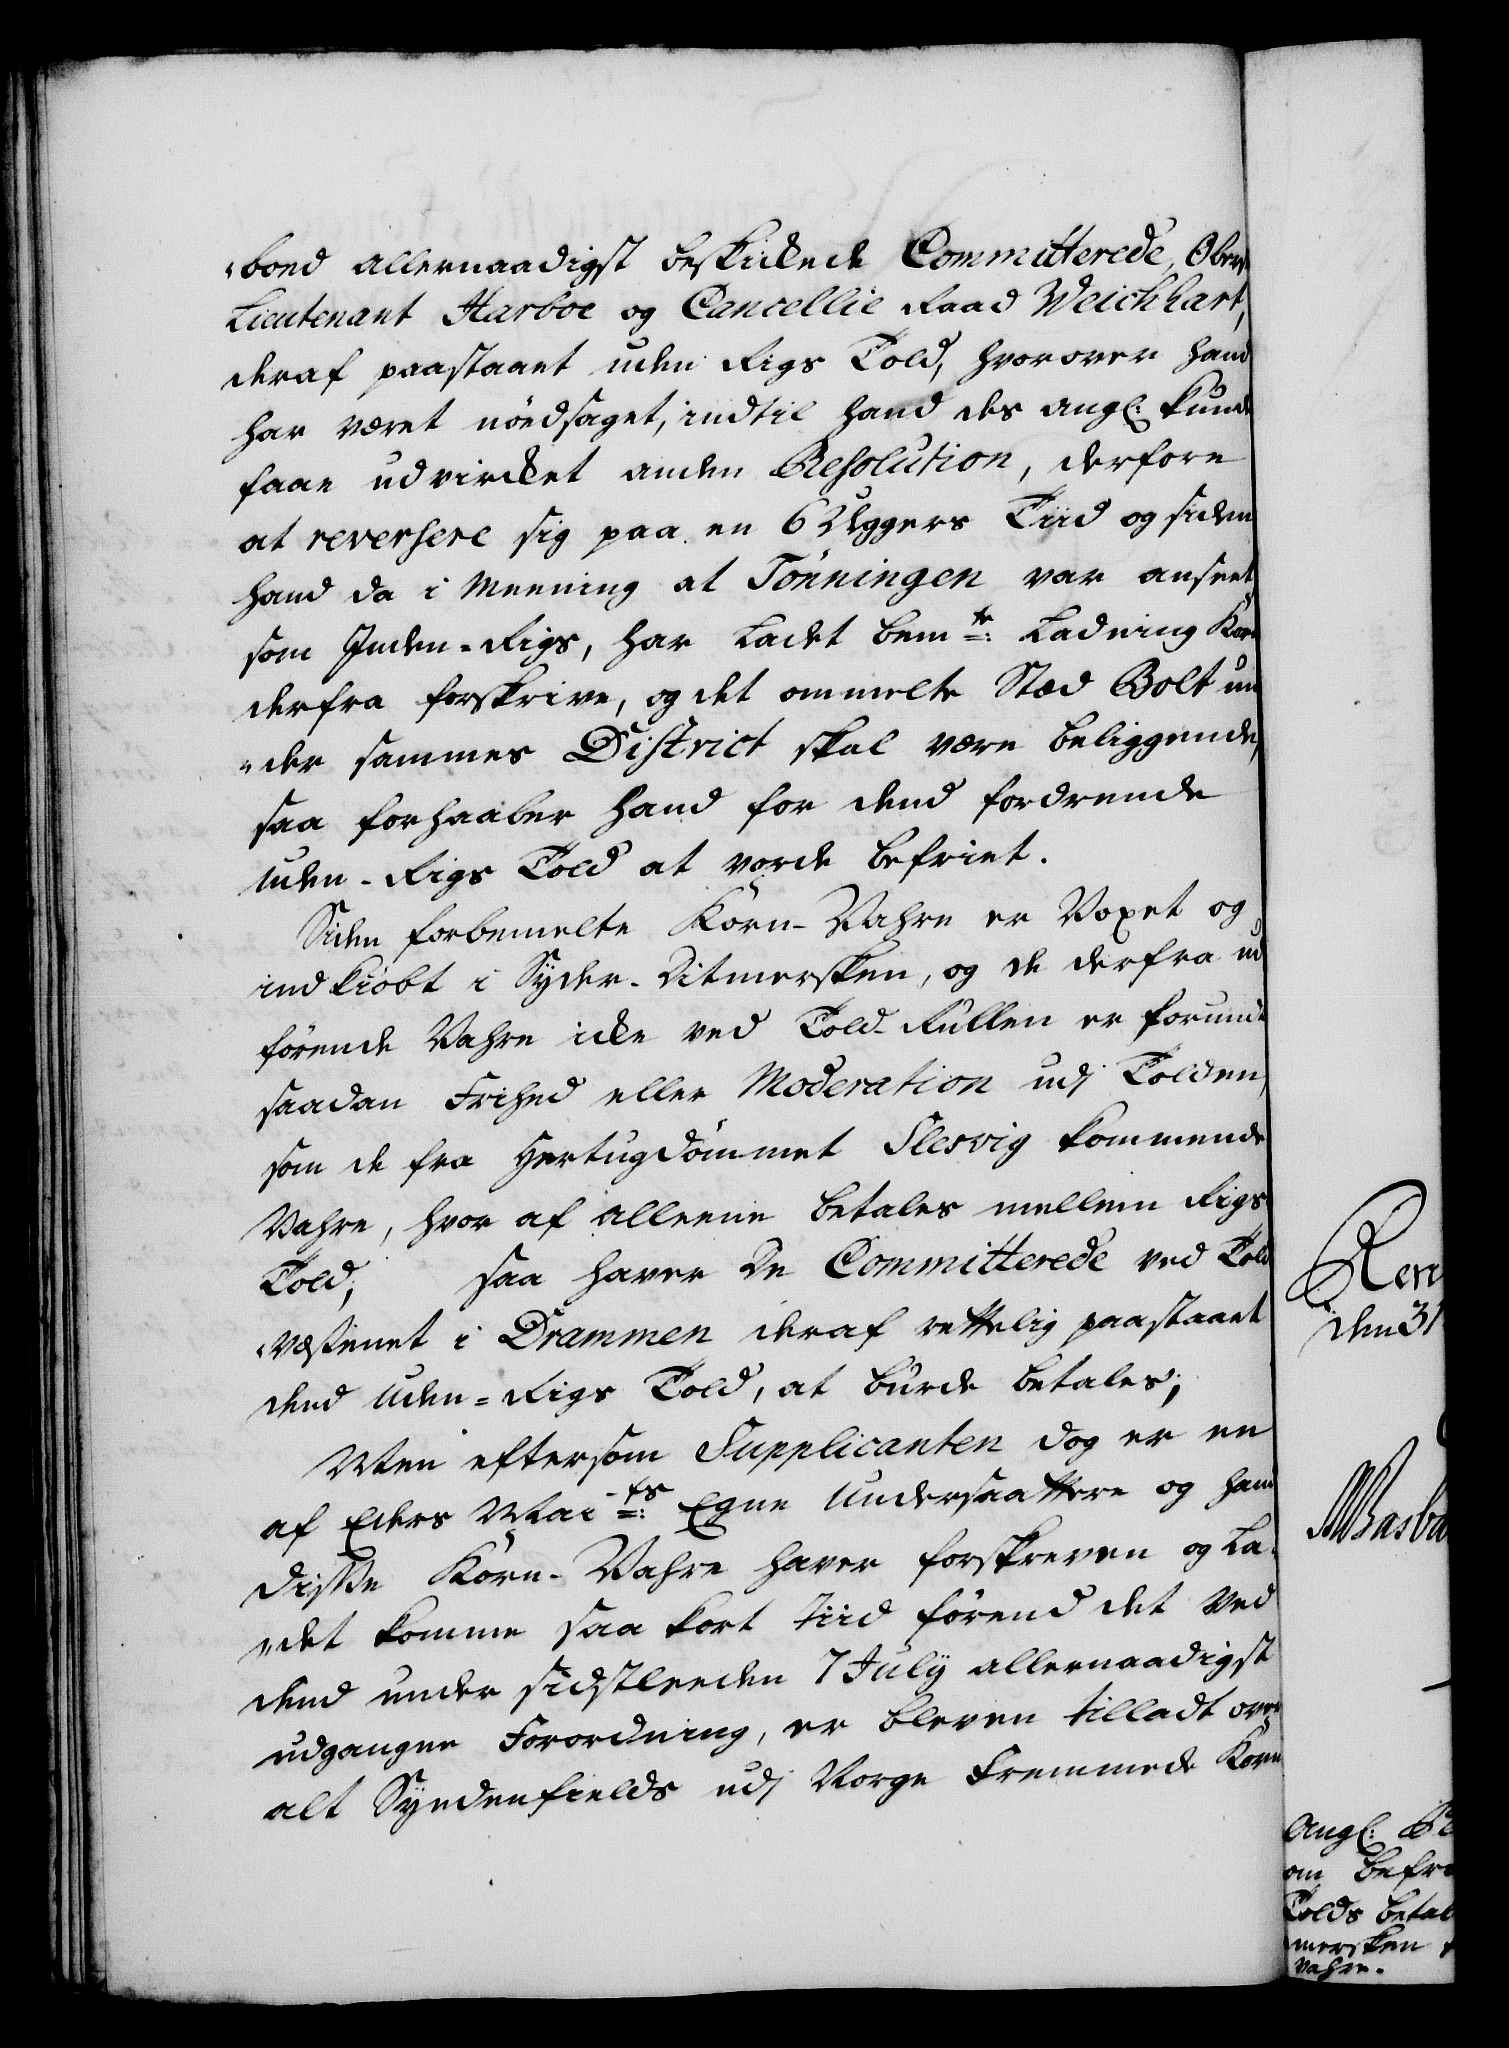 „boed allernaadigst beskickede Committerede, Oberst
Lieutenant Harboe og Cancellie Raad Weichhart,
deraf paastaaet uden Rigs Told, hvorover hand
har været nödsaget, indtil hand des angl: kunde
faae udvircket anden Resolution, derfore
at reversere sig paa en 6 Uggers Tiid og siden
hand da i Meening at Tönningen var anseet
som Inden-Rigs, har ladet bemte: Ladning Korn
derfra forskrive, og det ommelte Stæd Bolt un
„der sammes District skal være beliggende,
saa forhaaber hand for dend fordrende
Uden-Rigs Told at vorde befriet.
Siden forbemelte Korn-Vahre er Voxet og
indkiöbt i Syder-Ditmersken, og de derfra ud
förende Vahre icke ved Told-Rullen er forundt
saadan Frihed eller Moderation udj Tolden,
som de fra Hertugdömmet Slesvig kommende
Vahre, hvor af alleene betales mellem Rigs
Told; saa haver De Committerede ved Told
„væsenet i Drammen deraf rettelig paastaaet
dend Uden-Rigs Told, at burde betales;
Men eftersom Supplicanten dog er en
af Eders Maits: Egne Undersaattere og hand
disse Korn-Vahre haver forskreven og La-
„det komme saa kort tiid förend det ved
dend under sidstleeden 7 July allernaadigst
udgangne Forordning, er bleven tilladt over
alt Syndenfields udj Norge Fremmede Korn
den 31
Angl:
om befri
Tolds betal
mersken
Vahre.